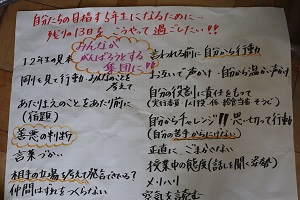 自分たちの目指す5年生になるために…
残りの13日をこうやって過ごしたい!!
みんなが
がんばろうとする
集団に!!
1,2年生の見本
周りを見て行動
みんなのことを
考えて
あたりまえのことをあたり前に
(宿題)
善悪の判断
言葉づかい
相手の立場を考えて発言できる?
仲間はずれをつくらない
言われる前に自分から行動
お互いで声かけ・自分から温か声かけ
自分の役割に責任をもって
(実行委員 1人1役 係 給食当番 そうじ)
自分からチャレンジ!!思い切って行動
(自分の苦手からにげない)
正直に ごまかさない
授業中の態度(話しを聞く姿勢)
メリハリ
空気を読む